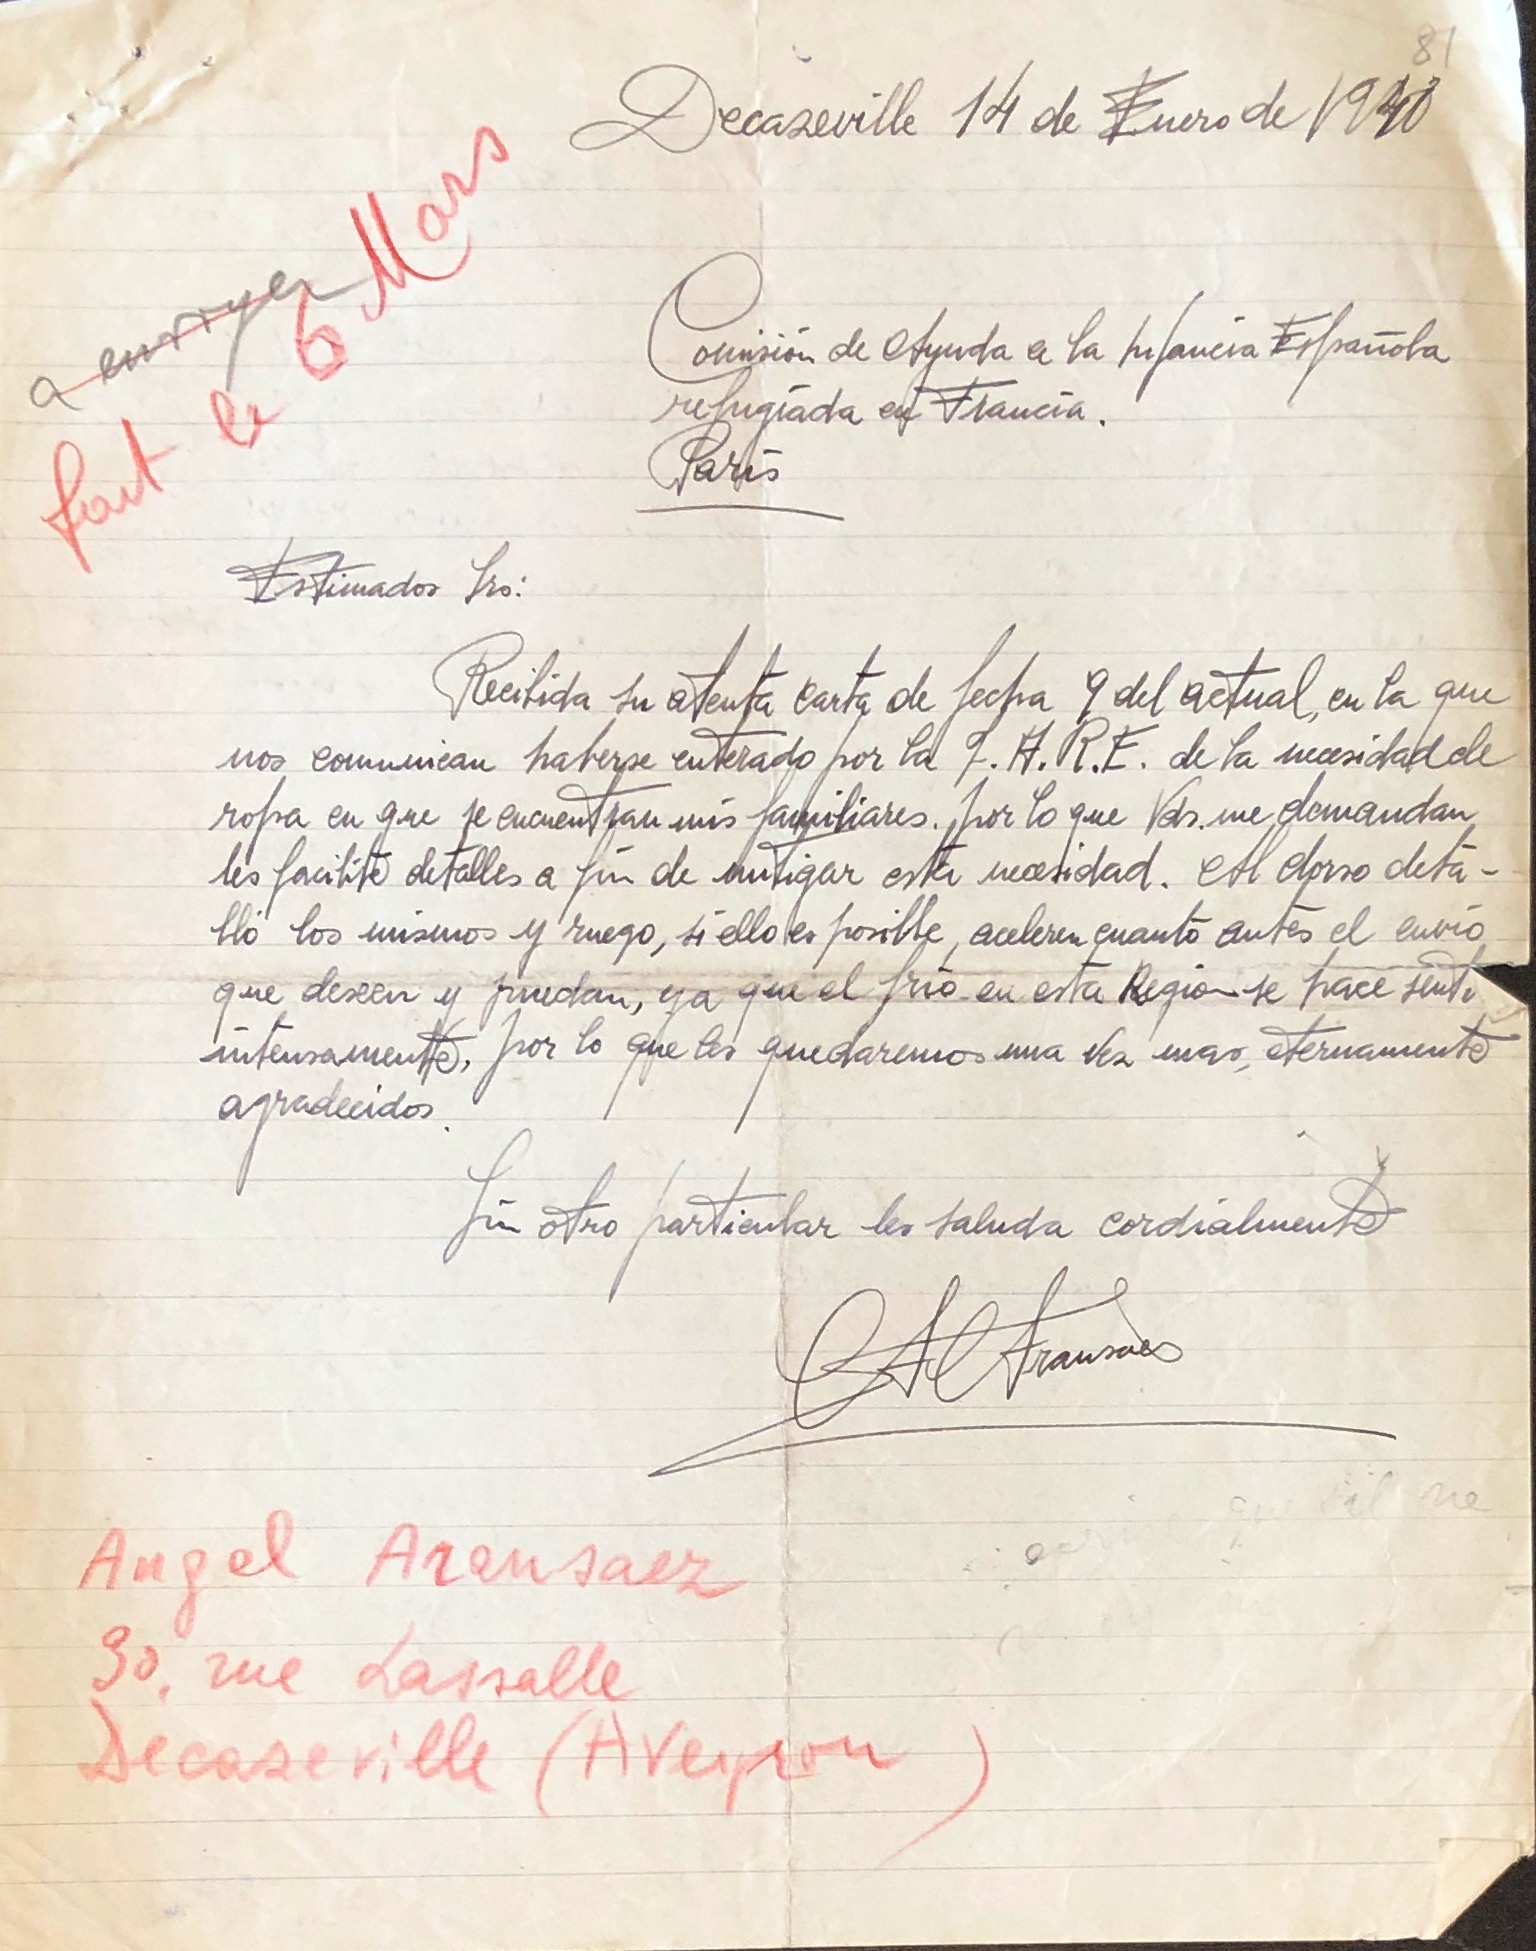 81
Decazeville 14 de Enero de 1940
a envoyer
fait le 6 Mars
Comisión de Ayuda a la Infancia Española
refugiada en Francia.
París
Estimados Srs:
Recibida su atenta carta de fecha 9 del actual, en la que
nos comunican haberse enterado por la J.A.R.E. de la necesidad de
ropa en que se encuentran mis familiares. por lo que Vds. me demandan
les facilite detalles a fin de mitigar esta necesidad. Al dorso deta-
llo los mismos y ruego, si ello es posible, aceleren cuanto antes el envio
que deseen y puedan, ya que el frio en esta Region se hace senti
intensamente, por lo que les quedaremos una vez mas, eternamente
agradecidos.
Sin otro particular les saluda cordialmente
A Aransáez
Angel Aransaez
90, rue Lassalle
Decazeville (Aveyron)